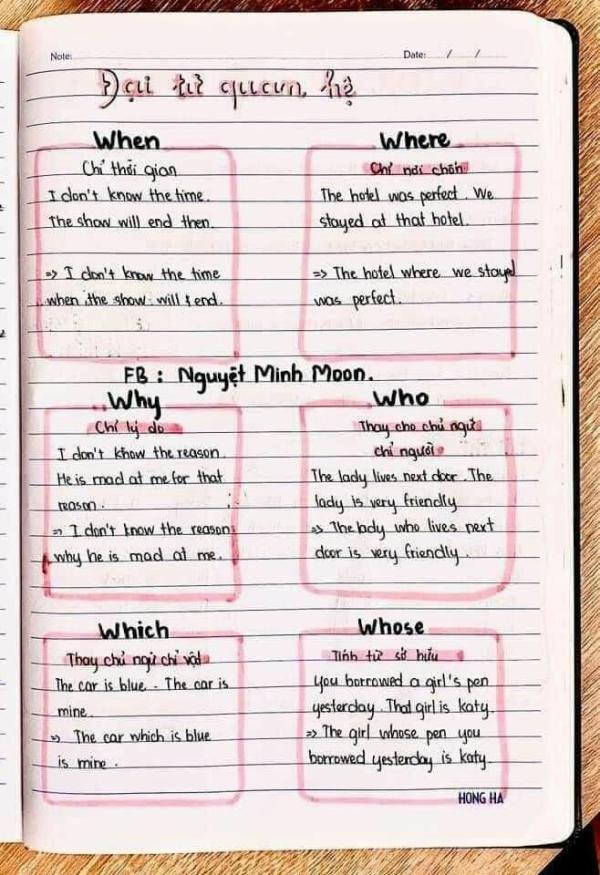 Note:
Date: / /
Đại từ quan hệ
When
Chỉ thời gian
I don't know the time.
The show will end then.
=> I don't know the time
when the show will end.
Where
Chỉ nơi chốn
The hotel was perfect. We
stayed at that hotel.
=> The hotel where we stayed
was perfect.
FB : Nguyệt Minh Moon.
Why
Chỉ lý do
I don't know the reason.
He is mad at me for that
reason.
=> I don't know the reason
why he is mad at me.
Who
Thay cho chủ ngữ
chỉ người
The lady lives next door. The
lady is very friendly
=> The lady who lives next
door is very friendly.
Which
Thay chủ ngữ chỉ vật
The car is blue. The car is
mine.
=> The car which is blue
is mine.
Whose
Tính từ sở hữu
You borrowed a girl's pen
yesterday. That girl is katy.
=> The girl whose pen you
borrowed yesterday is katy.
HONG HA